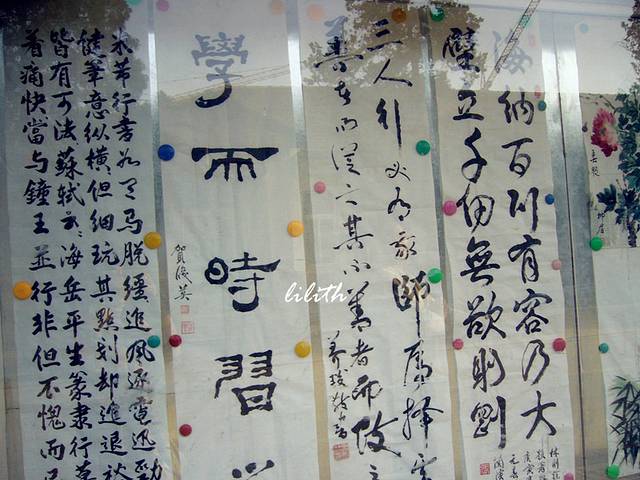 海納百川有容乃大
壁立千仞無欲則剛
三人行必有我師焉擇其
善者而從之其不善者而改之
學而時習之
米芾行書如天馬脫韁追風逐電迅勁
健筆意縱橫但細玩其點划却進退裕
皆有可法蘇軾云海岳平生篆隸行草
着痛快當与鐘王並行非但不愧而已
lilith